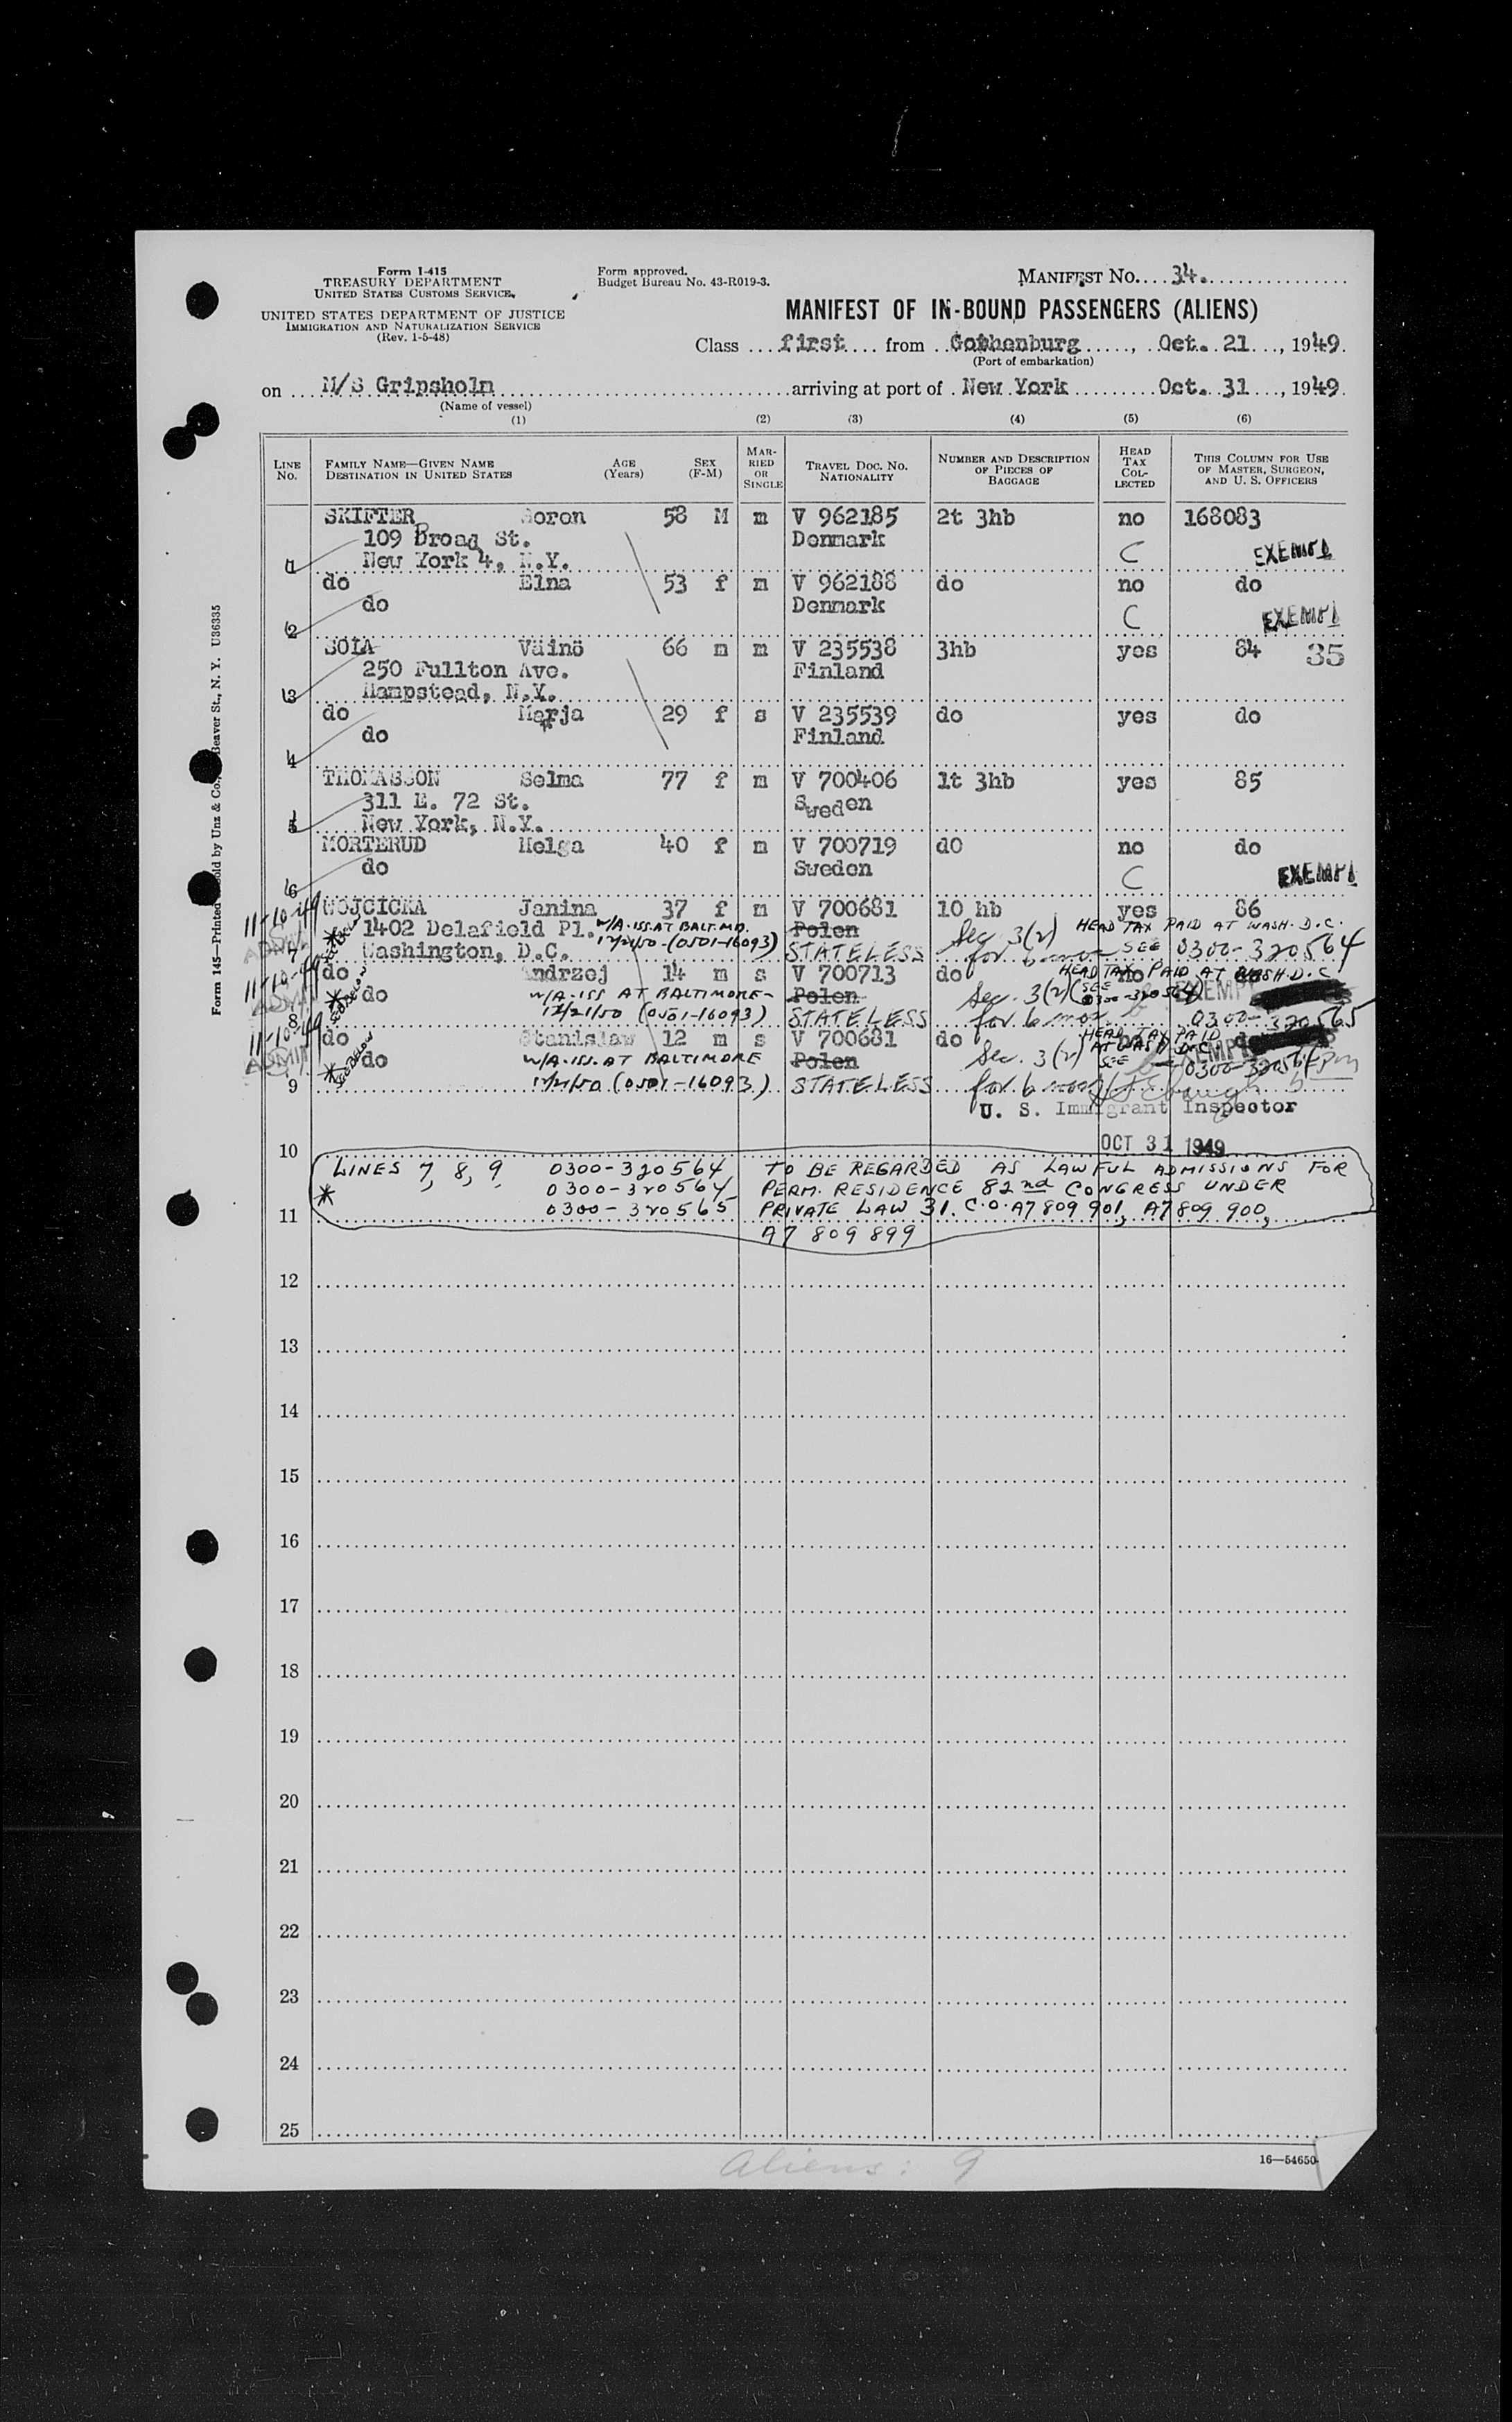 Form I-415
TREASURY DEPARTMENT
UNITED STATES CUSTOMS SERVICE
UNITED STATES DEPARTMENT OF JUSTICE
IMMIGRATION AND NATURALIZATION SERVICE
(Rev. 1-5-48)
Form approved.
Budget Bureau No. 43-R019-3.
MANIFEST No. 34.
MANIFEST OF IN-BOUND PASSENGERS (ALIENS)
Class first from Gothenburg, Oct. 21, 1949.
(Port of embarkation)
on M/S Gripsholm arriving at port of New York Oct. 31, 1949.
(Name of vessel)
(1) (2) (3) (4) (5) (6)
LINE No. FAMILY NAME—GIVEN NAME DESTINATION IN UNITED STATES AGE (Years) SEX (F-M) MARRIED OR SINGLE TRAVEL DOC. NO. NATIONALITY NUMBER AND DESCRIPTION OF PIECES OF BAGGAGE HEAD TAX COLLECTED THIS COLUMN FOR USE OF MASTER, SURGEON, AND U. S. OFFICERS
SKIFTER Soren 58 M m V 962185 2t 3hb no 168083
109 Broad St. Denmark C EXEMPT
1 New York 4, N.Y.
do Elna 53 f m V 962188 do no do
do Denmark C EXEMPT
2
SOLA Väinö 66 m m V 235538 3hb yes 84 35
250 Fullton Ave. Finland
3 Hampstead, N.Y.
do Marja 29 f s V 235539 do yes do
do Finland
4
THOMASSON Selma 77 f m V 700406 1t 3hb yes 85
311 E. 72 St. Sweden
5 New York, N.Y.
MORTERUD Helga 40 f m V 700719 do no do
do Sweden C EXEMPT
6
11-10-49 WOJCICKA Janina 37 f m V 700681 10 hb yes 86
* 1402 Delafield Pl. W/A. ISS. AT BALT. MD. Polen Sec 3(2) HEAD TAX PAID AT WASH. D.C.
7 Washington, D.C. 12/21/50 - (0501-16093) STATELESS for 6 mos SEE 0300-320564
11-10-49 do Andrzej 14 m s V 700713 do no HEAD TAX PAID AT WASH. D.C.
* do W/A. ISS AT BALTIMORE - Polen Sec. 3(2) (SEE 0300-320564) EXEMPT
8 12/21/50 (0501-16093) STATELESS for 6 mos 0300-320565
11-10-49 do Stanislaw 12 m s V 700681 do HEAD TAX PAID
ADMIT * See Below do W/A. ISS. AT BALTIMORE Polen Sec. 3(2) AT WASH D.C. SEE EXEMPT 0300-320564
9 12/21/50 (0501-16093) STATELESS for 6 mos
U. S. Immigrant Inspector
10 OCT 31 1949
LINES 7, 8, 9 0300-320564 TO BE REGARDED AS LAWFUL ADMISSIONS FOR
* 0300-320564 PERM. RESIDENCE 82nd CONGRESS UNDER
11 0300-320565 PRIVATE LAW 31. C.O. A7 809 901, A7 809 900,
A7 809 899
12
13
14
15
16
17
18
19
20
21
22
23
24
25
Aliens: 9
16—54650
Form 145—Printed Sold by Unz & Co., Beaver St., N. Y. U36335